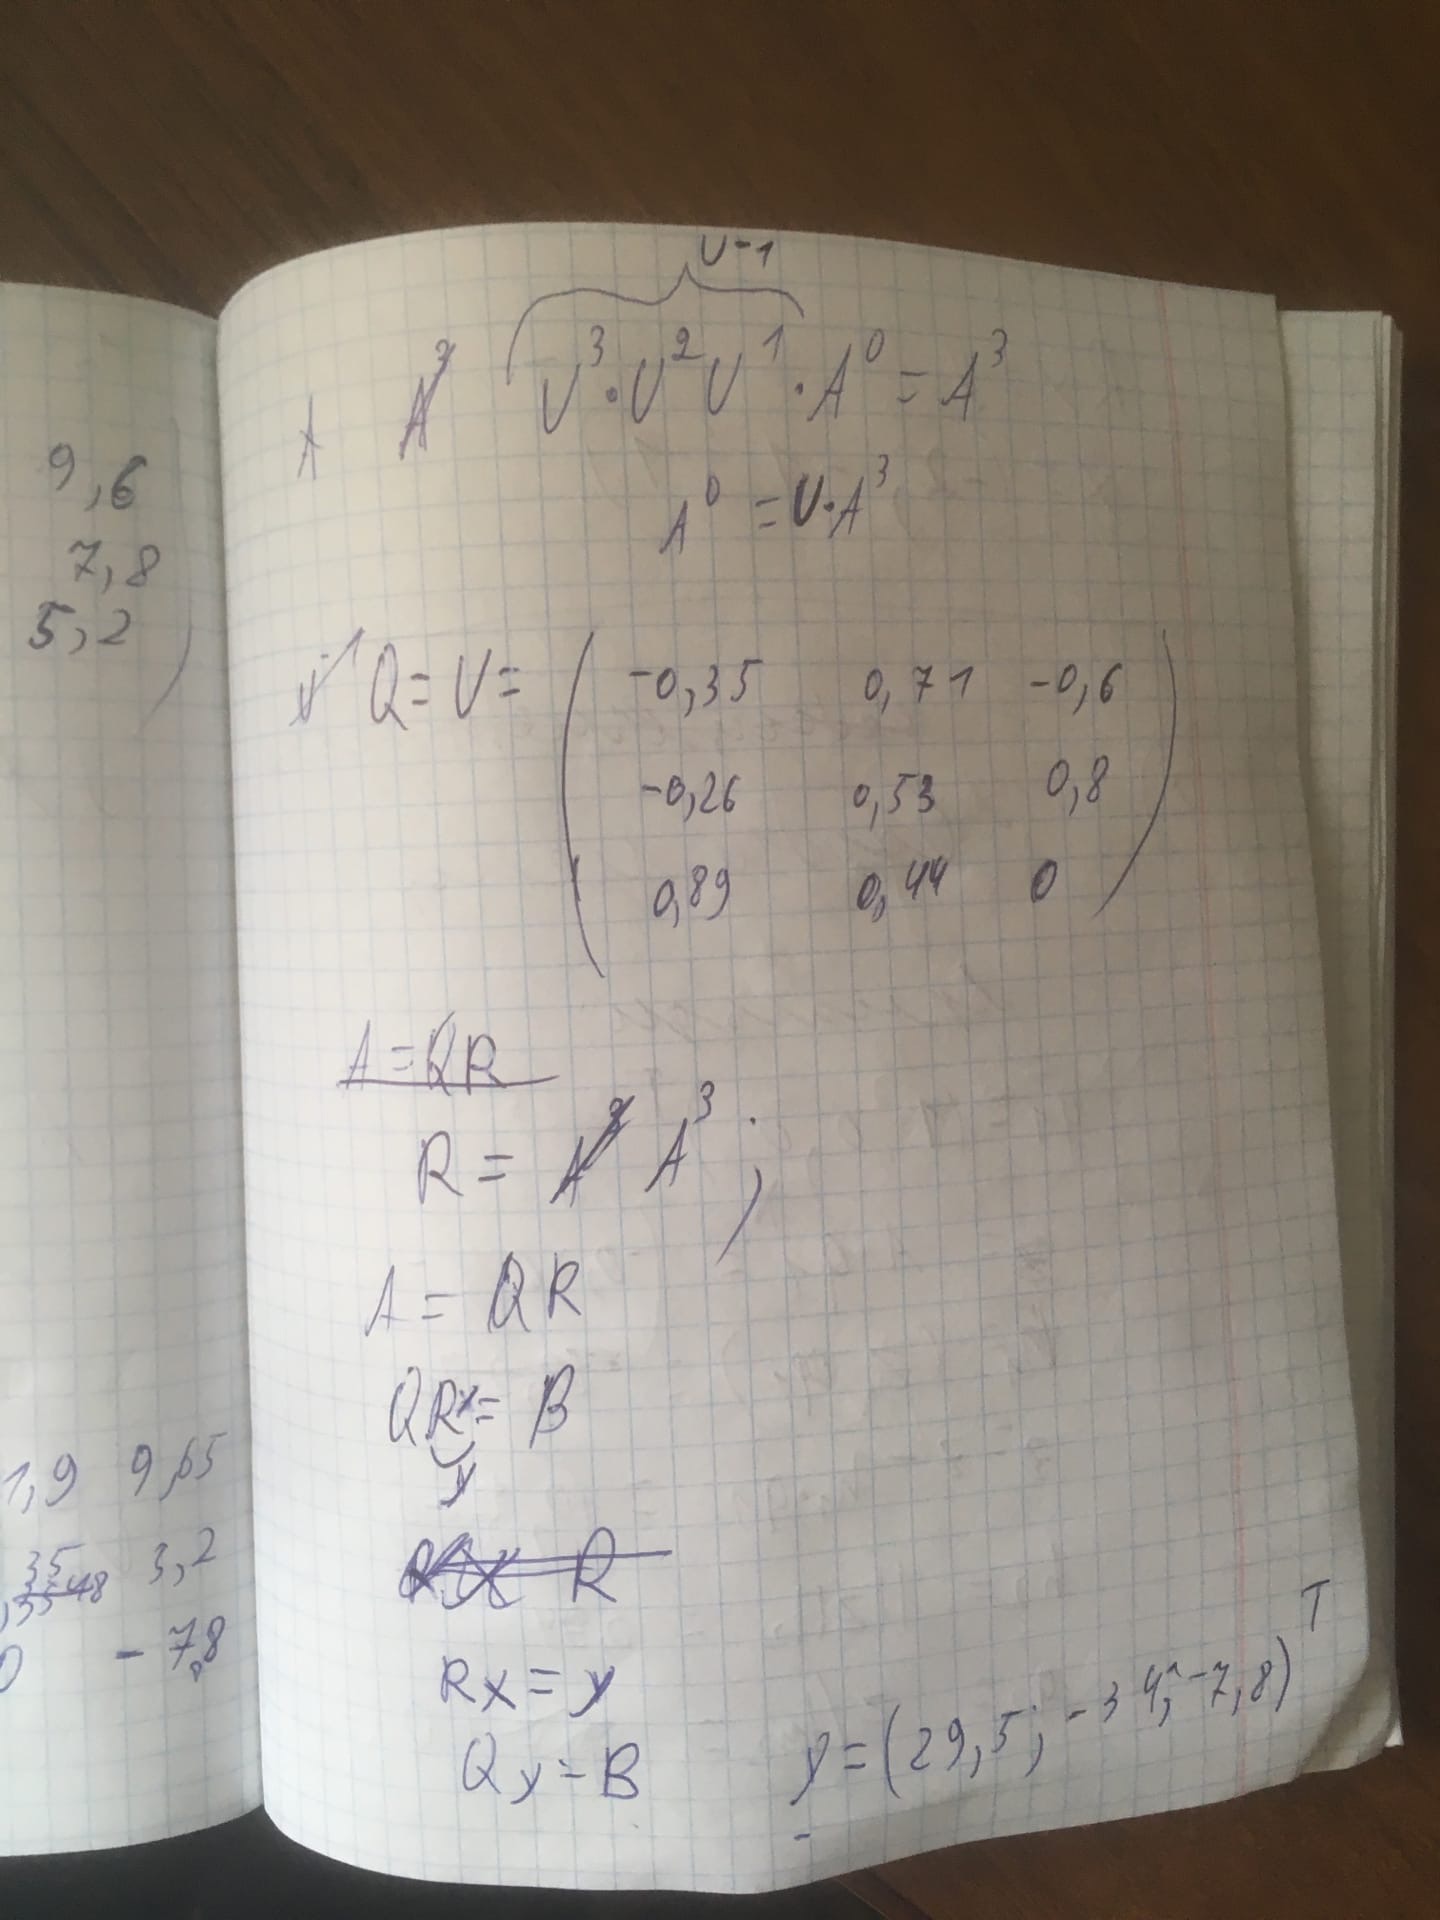 9,6
7,8
5,2
1,9 9,65
35
3,2
0 -7,8
U-1
A A³ U³·U²U¹·A⁰=A³
A⁰=U·A³
U⁻¹ Q=U=
-0,35 0,71 -0,6
-0,26 0,53 0,8
0,89 0,44 0
A=QR
R= A³ ;
A= QR
QRx= B
y
R
Rx=y
Qy=B y=(29,5; -34; -7,8)ᵀ